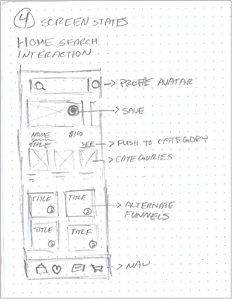 4 SCREEN STATES
HOME SEARCH
INTERACTION
PROFILE AVATAR
SAVE
NAME $110
TITLE SEE
PUSH TO CATEGORY
CATEGORIES
TITLE TITLE
ALTERNATE
FUNNELS
TITLE TITLE
NAV